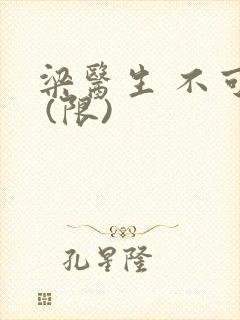 梁醫生 不可
(限)
孔星隆